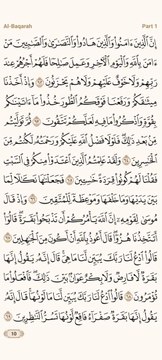 Al-Baqarah Part 1
إِنَّ ٱلَّذِينَ ءَامَنُوا۟ وَٱلَّذِينَ هَادُوا۟ وَٱلنَّصَـٰرَىٰ وَٱلصَّـٰبِـِٔينَ مَنْ
ءَامَنَ بِٱللَّهِ وَٱلْيَوْمِ ٱلْـَٔاخِرِ وَعَمِلَ صَـٰلِحًا فَلَهُمْ أَجْرُهُمْ عِندَ
رَبِّهِمْ وَلَا خَوْفٌ عَلَيْهِمْ وَلَا هُمْ يَحْزَنُونَ ٦٢ وَإِذْ أَخَذْنَا
مِيثَـٰقَكُمْ وَرَفَعْنَا فَوْقَكُمُ ٱلطُّورَ خُذُوا۟ مَآ ءَاتَيْنَـٰكُم
بِقُوَّةٍ وَٱذْكُرُوا۟ مَا فِيهِ لَعَلَّكُمْ تَتَّقُونَ ٦٣ ثُمَّ تَوَلَّيْتُم
مِّنۢ بَعْدِ ذَٰلِكَ فَلَوْلَا فَضْلُ ٱللَّهِ عَلَيْكُمْ وَرَحْمَتُهُۥ لَكُنتُم مِّنَ
ٱلْخَـٰسِرِينَ ٦٤ وَلَقَدْ عَلِمْتُمُ ٱلَّذِينَ ٱعْتَدَوْا۟ مِنكُمْ فِى ٱلسَّبْتِ
فَقُلْنَا لَهُمْ كُونُوا۟ قِرَدَةً خَـٰسِـِٔينَ ٦٥ فَجَعَلْنَـٰهَا نَكَـٰلًا لِّمَا
بَيْنَ يَدَيْهَا وَمَا خَلْفَهَا وَمَوْعِظَةً لِّلْمُتَّقِينَ ٦٦ وَإِذْ قَالَ
مُوسَىٰ لِقَوْمِهِۦٓ إِنَّ ٱللَّهَ يَأْمُرُكُمْ أَن تَذْبَحُوا۟ بَقَرَةً قَالُوٓا۟
أَتَتَّخِذُنَا هُزُوًا قَالَ أَعُوذُ بِٱللَّهِ أَنْ أَكُونَ مِنَ ٱلْجَـٰهِلِينَ ٦٧
قَالُوا۟ ٱدْعُ لَنَا رَبَّكَ يُبَيِّن لَّنَا مَا هِىَ قَالَ إِنَّهُۥ يَقُولُ إِنَّهَا
بَقَرَةٌ لَّا فَارِضٌ وَلَا بِكْرٌ عَوَانٌۢ بَيْنَ ذَٰلِكَ فَٱفْعَلُوا۟ مَا
تُؤْمَرُونَ ٦٨ قَالُوا۟ ٱدْعُ لَنَا رَبَّكَ يُبَيِّن لَّنَا مَا لَوْنُهَا قَالَ إِنَّهُۥ
يَقُولُ إِنَّهَا بَقَرَةٌ صَفْرَآءُ فَاقِعٌ لَّوْنُهَا تَسُرُّ ٱلنَّـٰظِرِينَ ٦٩
10